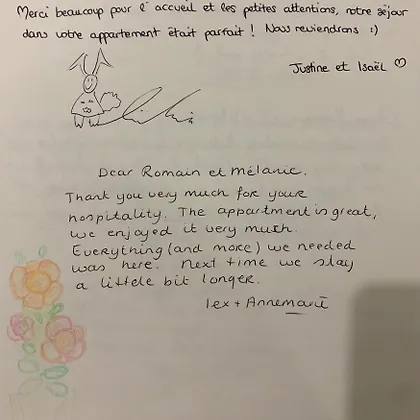 Merci beaucoup pour l'accueil et les petites attentions, notre séjour
dans votre appartement était parfait ! Nous reviendrons :)
Justine et Isaël ♡
Dear Romain et Mélanie,
Thank you very much for your
hospitality. The appartment is great,
we enjoyed it very much.
Everything (and more) we needed
was here. Next time we stay
a littele bit longer.
lex + Annemarie